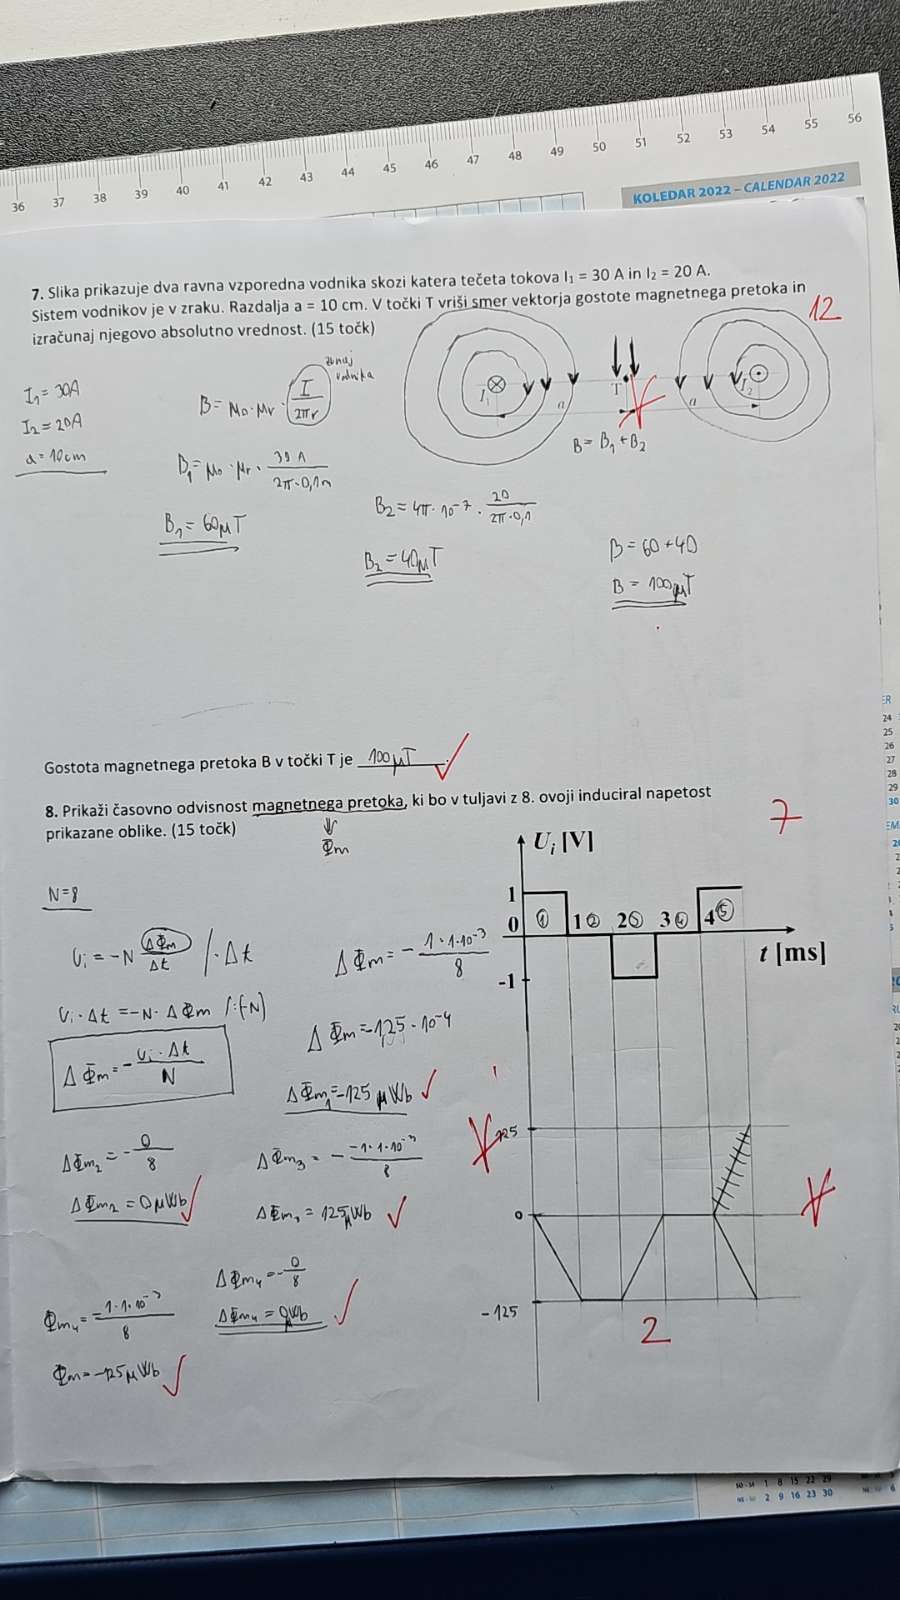 36 37 38 39 40 41 42 43 44 45 46 47 48 49 50 51 52 53 54 55 56
KOLEDAR 2022 – CALENDAR 2022
7. Slika prikazuje dva ravna vzporedna vodnika skozi katera tečeta tokova I₁ = 30 A in I₂ = 20 A.
Sistem vodnikov je v zraku. Razdalja a = 10 cm. V točki T vriši smer vektorja gostote magnetnega pretoka in
izračunaj njegovo absolutno vrednost. (15 točk)
12
I₁ = 30A
I₂ = 20A
a = 10cm
B = μ₀ · μr · I / 2πr
zunaj
vodnika
I₁ a T a I₂
B = B₁ + B₂
B₁ = μ₀ · μr · 30 A / 2π · 0,1m
B₁ = 60μT
B₂ = 4π · 10⁻⁷ · 20 / 2π · 0,1
B₂ = 40μT
B = 60 + 40
B = 100μT
Gostota magnetnega pretoka B v točki T je 100μT
8. Prikaži časovno odvisnost magnetnega pretoka, ki bo v tuljavi z 8. ovoji induciral napetost
prikazane oblike. (15 točk)
Φm
7
N=8
Uᵢ [V]
1
0 ① 1② 2③ 3④ 4⑤
-1
t [ms]
Uᵢ = -N ΔΦm / Δt / · Δt
Uᵢ · Δt = -N · ΔΦm / :(-N)
ΔΦm = - Uᵢ · Δt / N
ΔΦm = - 1 · 1 · 10⁻³ / 8
ΔΦm = -1,25 · 10⁻⁴
ΔΦm₁ = -125 μWb
ΔΦm₂ = - 0 / 8
ΔΦm₂ = 0 μWb
ΔΦm₃ = - -1 · 1 · 10⁻³ / 8
ΔΦm₃ = 125μWb
ΔΦm₄ = - 0 / 8
ΔΦm₄ = 0μWb
Φm₄ = -1 · 1 · 10⁻³ / 8
Φm = -125 μWb
125
0
-125
2
24
25
26
27
28
29
30
1 8 15 22 29
2 9 16 23 30
6